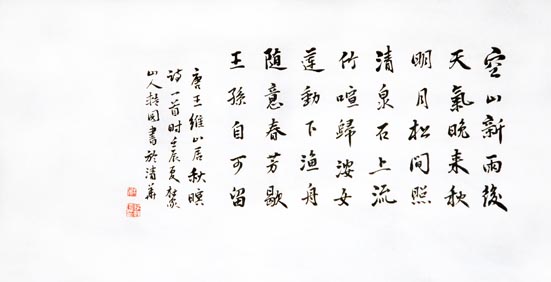 空山新雨後
天氣晚来秋
明月松間照
清泉石上流
竹喧歸浣女
莲動下渔舟
随意春芳歇
王孫自可留
唐王維山居秋暝
诗一首时壬辰夏
山人 書於清華